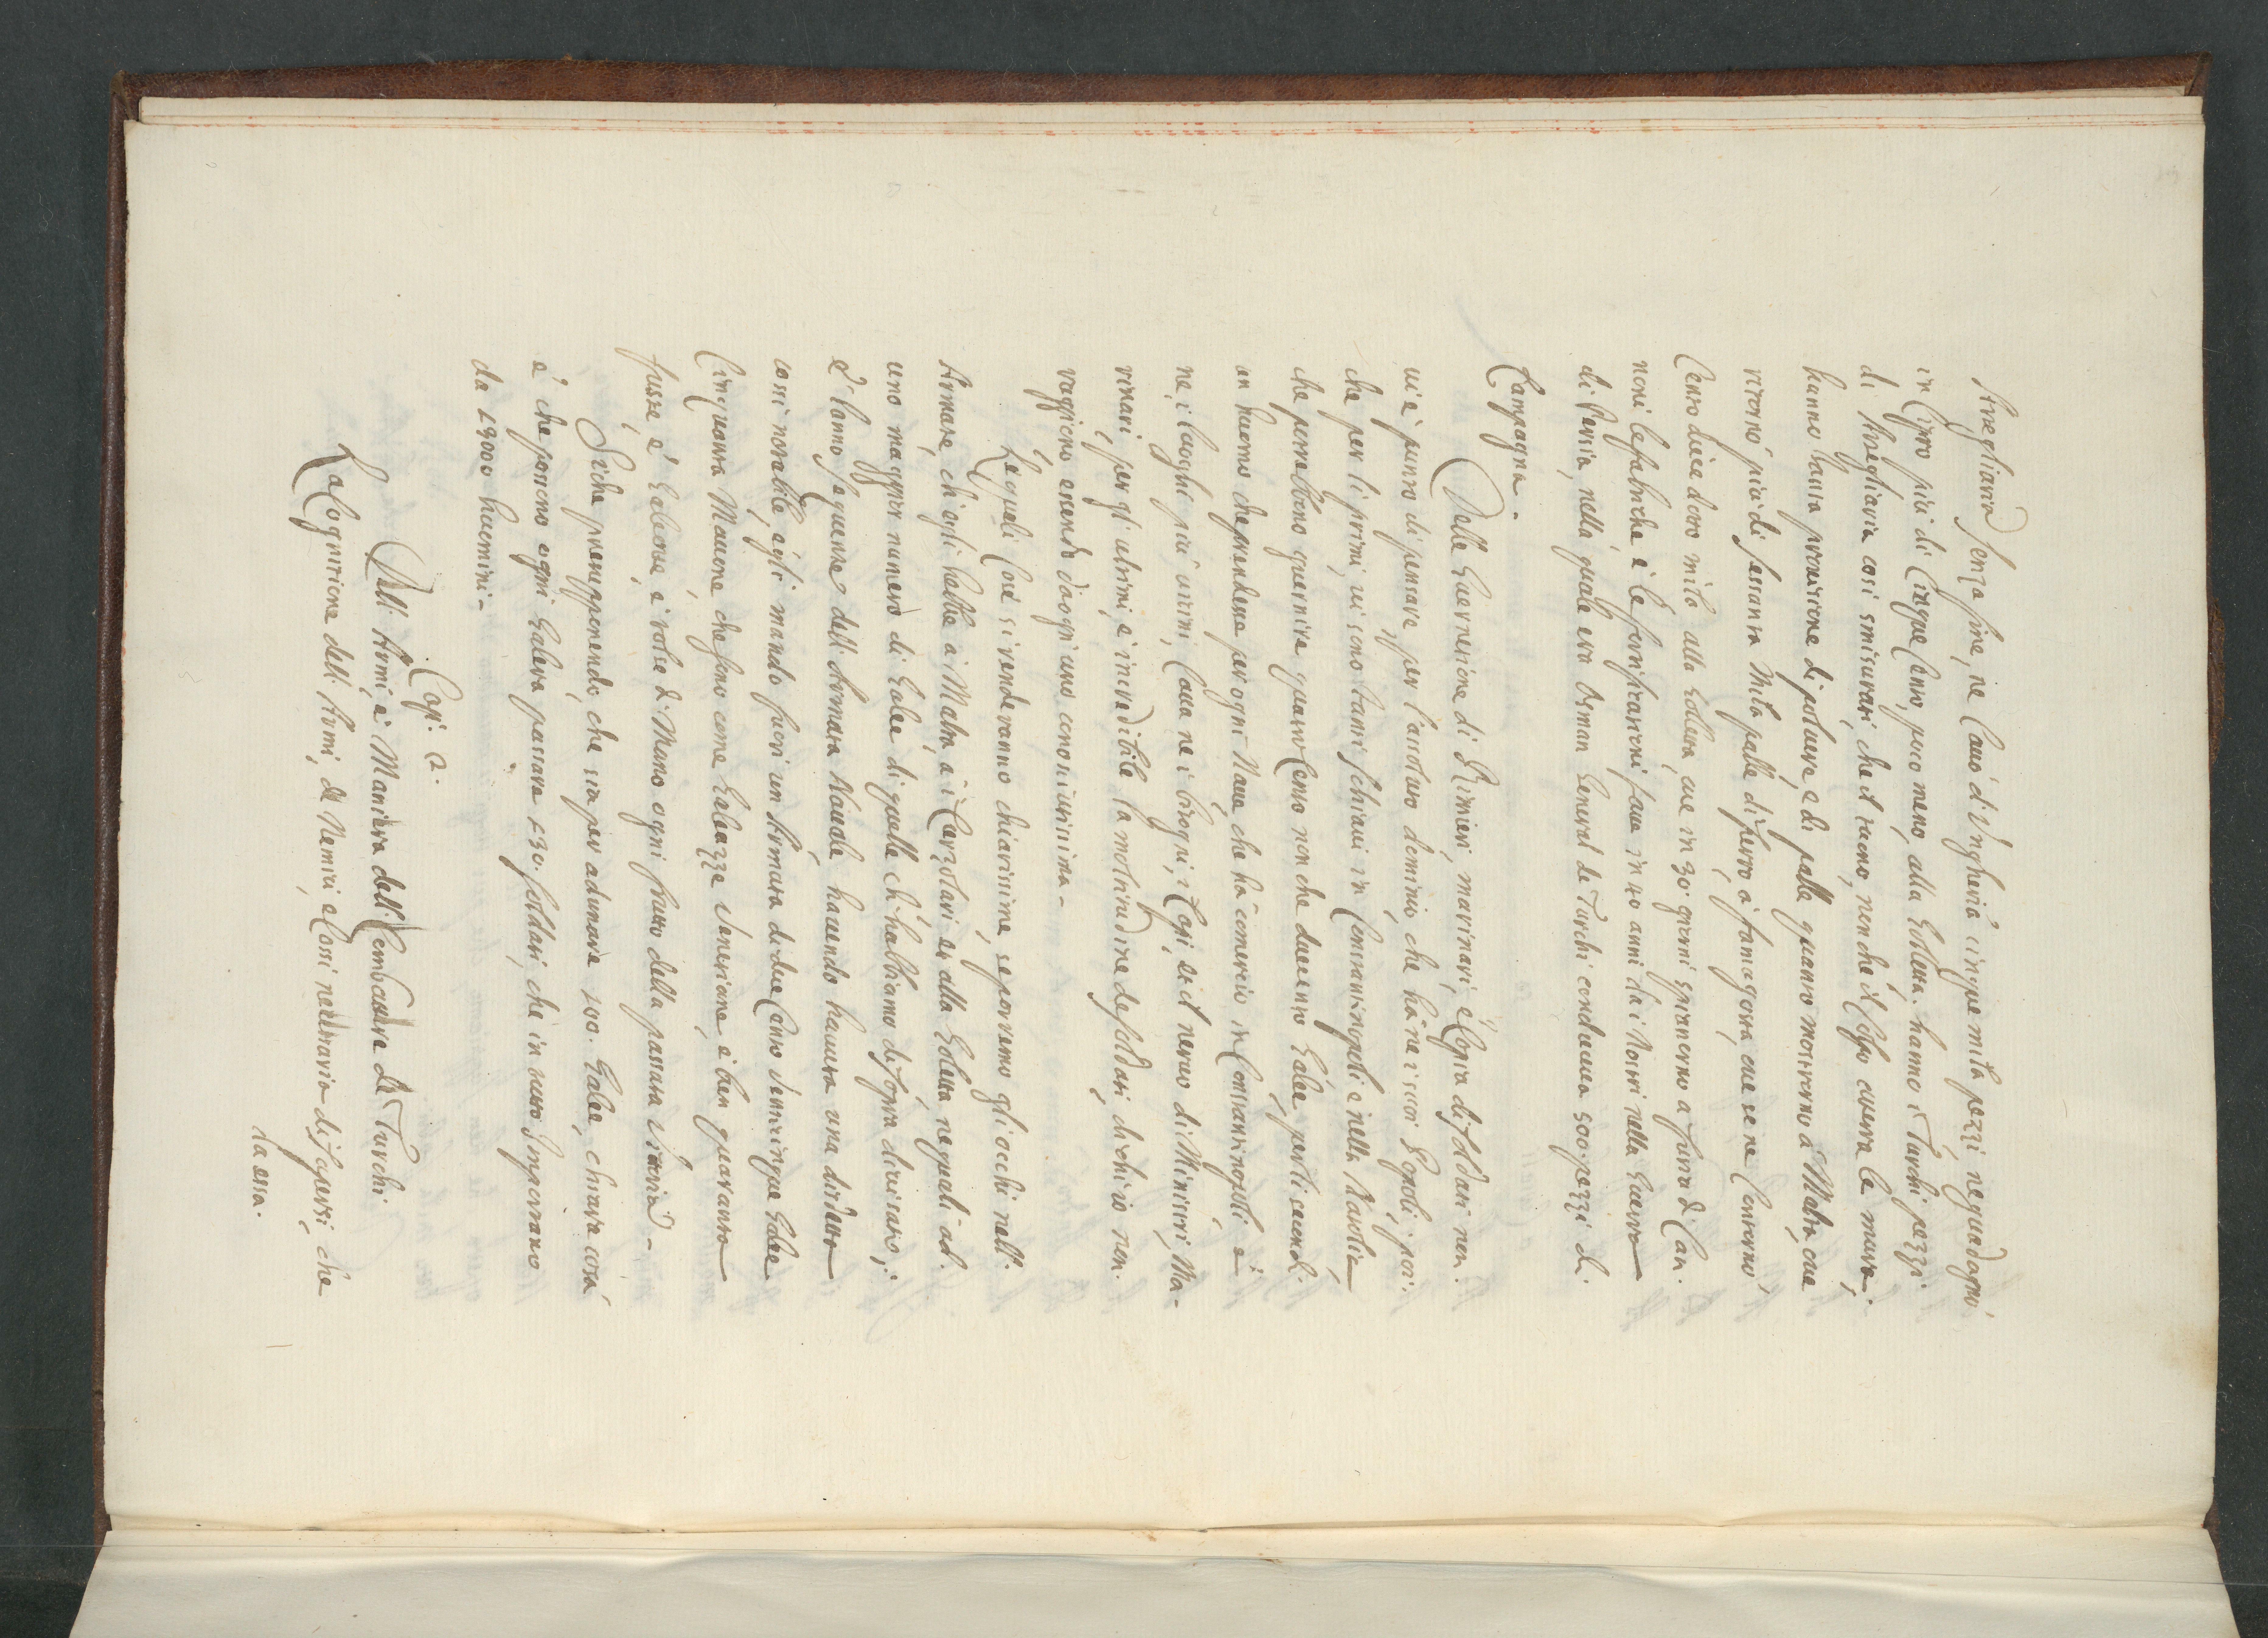 Artegliaria senza fine, ne Cauò d'Ungheria cinque mila pezzi, ne guadagnò
in Cipro più di Cinque Cento, puoco meno alla Goletta. hanno i Turchi pezzi
di Artegliaria cosi smisurati, che il tuono, non che il colpo atterra le mura;
hanno tanta prouisione di poluere, e di palle quanto mostrorno a Malta, oue
tirorno più di sessanta Mila palle di ferro, a famagosta, oue se ne Contorno
Cento diecedotto mila alla Golletta, oue in 39. giorni spianorno a furia di Can.
noni le fabriche e le fortificationi fatte in 40 anni da i Nostri nella Guerra
di Persia, nella quale era Osman General de Turchi conduceua 500. pezzi di
Campagna.
Della Guernisione di Rimieri, marinari, e Copia di soldati non.
ui è punto di pensare per l'assoluto dominio, che hà ne i suoi Popoli, poi.
che per li primi, ui sono tanti schiaui in Constantinopoli e nella Natolia
che potrebbono guernire quatro Cento non che ducento Galee per li secondi.
un huomo che prendesse per ogni Naue che hà comercio in Constantinopoli e
ne i luoghi più uicini, Caua ne i bisogni, i Capi, et il neruo di Ministri, Ma-
rinari, per gl'ultimi, è incredibile la moltitudine de soldati, di chi io non.
raggiono essendo d'ogni uno conosciutissima.
Le quali Cose si renderanno chiarissime, se porremo gli occhi nell.
Armate, ch'egli hebbe a Malta, a i Curzolari et alla Goletta ne quali ad.
uno maggior numero di Galee di quelle ch'habbiamo di sopra diuisato;
E l'anno seguente dell'Armata Nauale hauendo hauuta una disdetta
cossi notabile, egli mandò fuori un Armata di due Cento uenticinque Galee
Cinquanta Maone che sono come Galeazze Venetiane, e ben quaranta
fuste, e Galeotte, e tolse di Mano ogni frutto della passata Vittoria.
Siche presupponendo, che sia per adunare 400. Galee, chiara cosa
è, che possono ogni Galera passare 130. soldati, che in tutto Importano
da 49000 huomini.
Cap: 2.
Dell'Armi, e Maniera dell. Combattere de Turchi.
La Cognitione dell'Armi, de Nemici, e Cossi necessaria di sapersi, che
da essa.